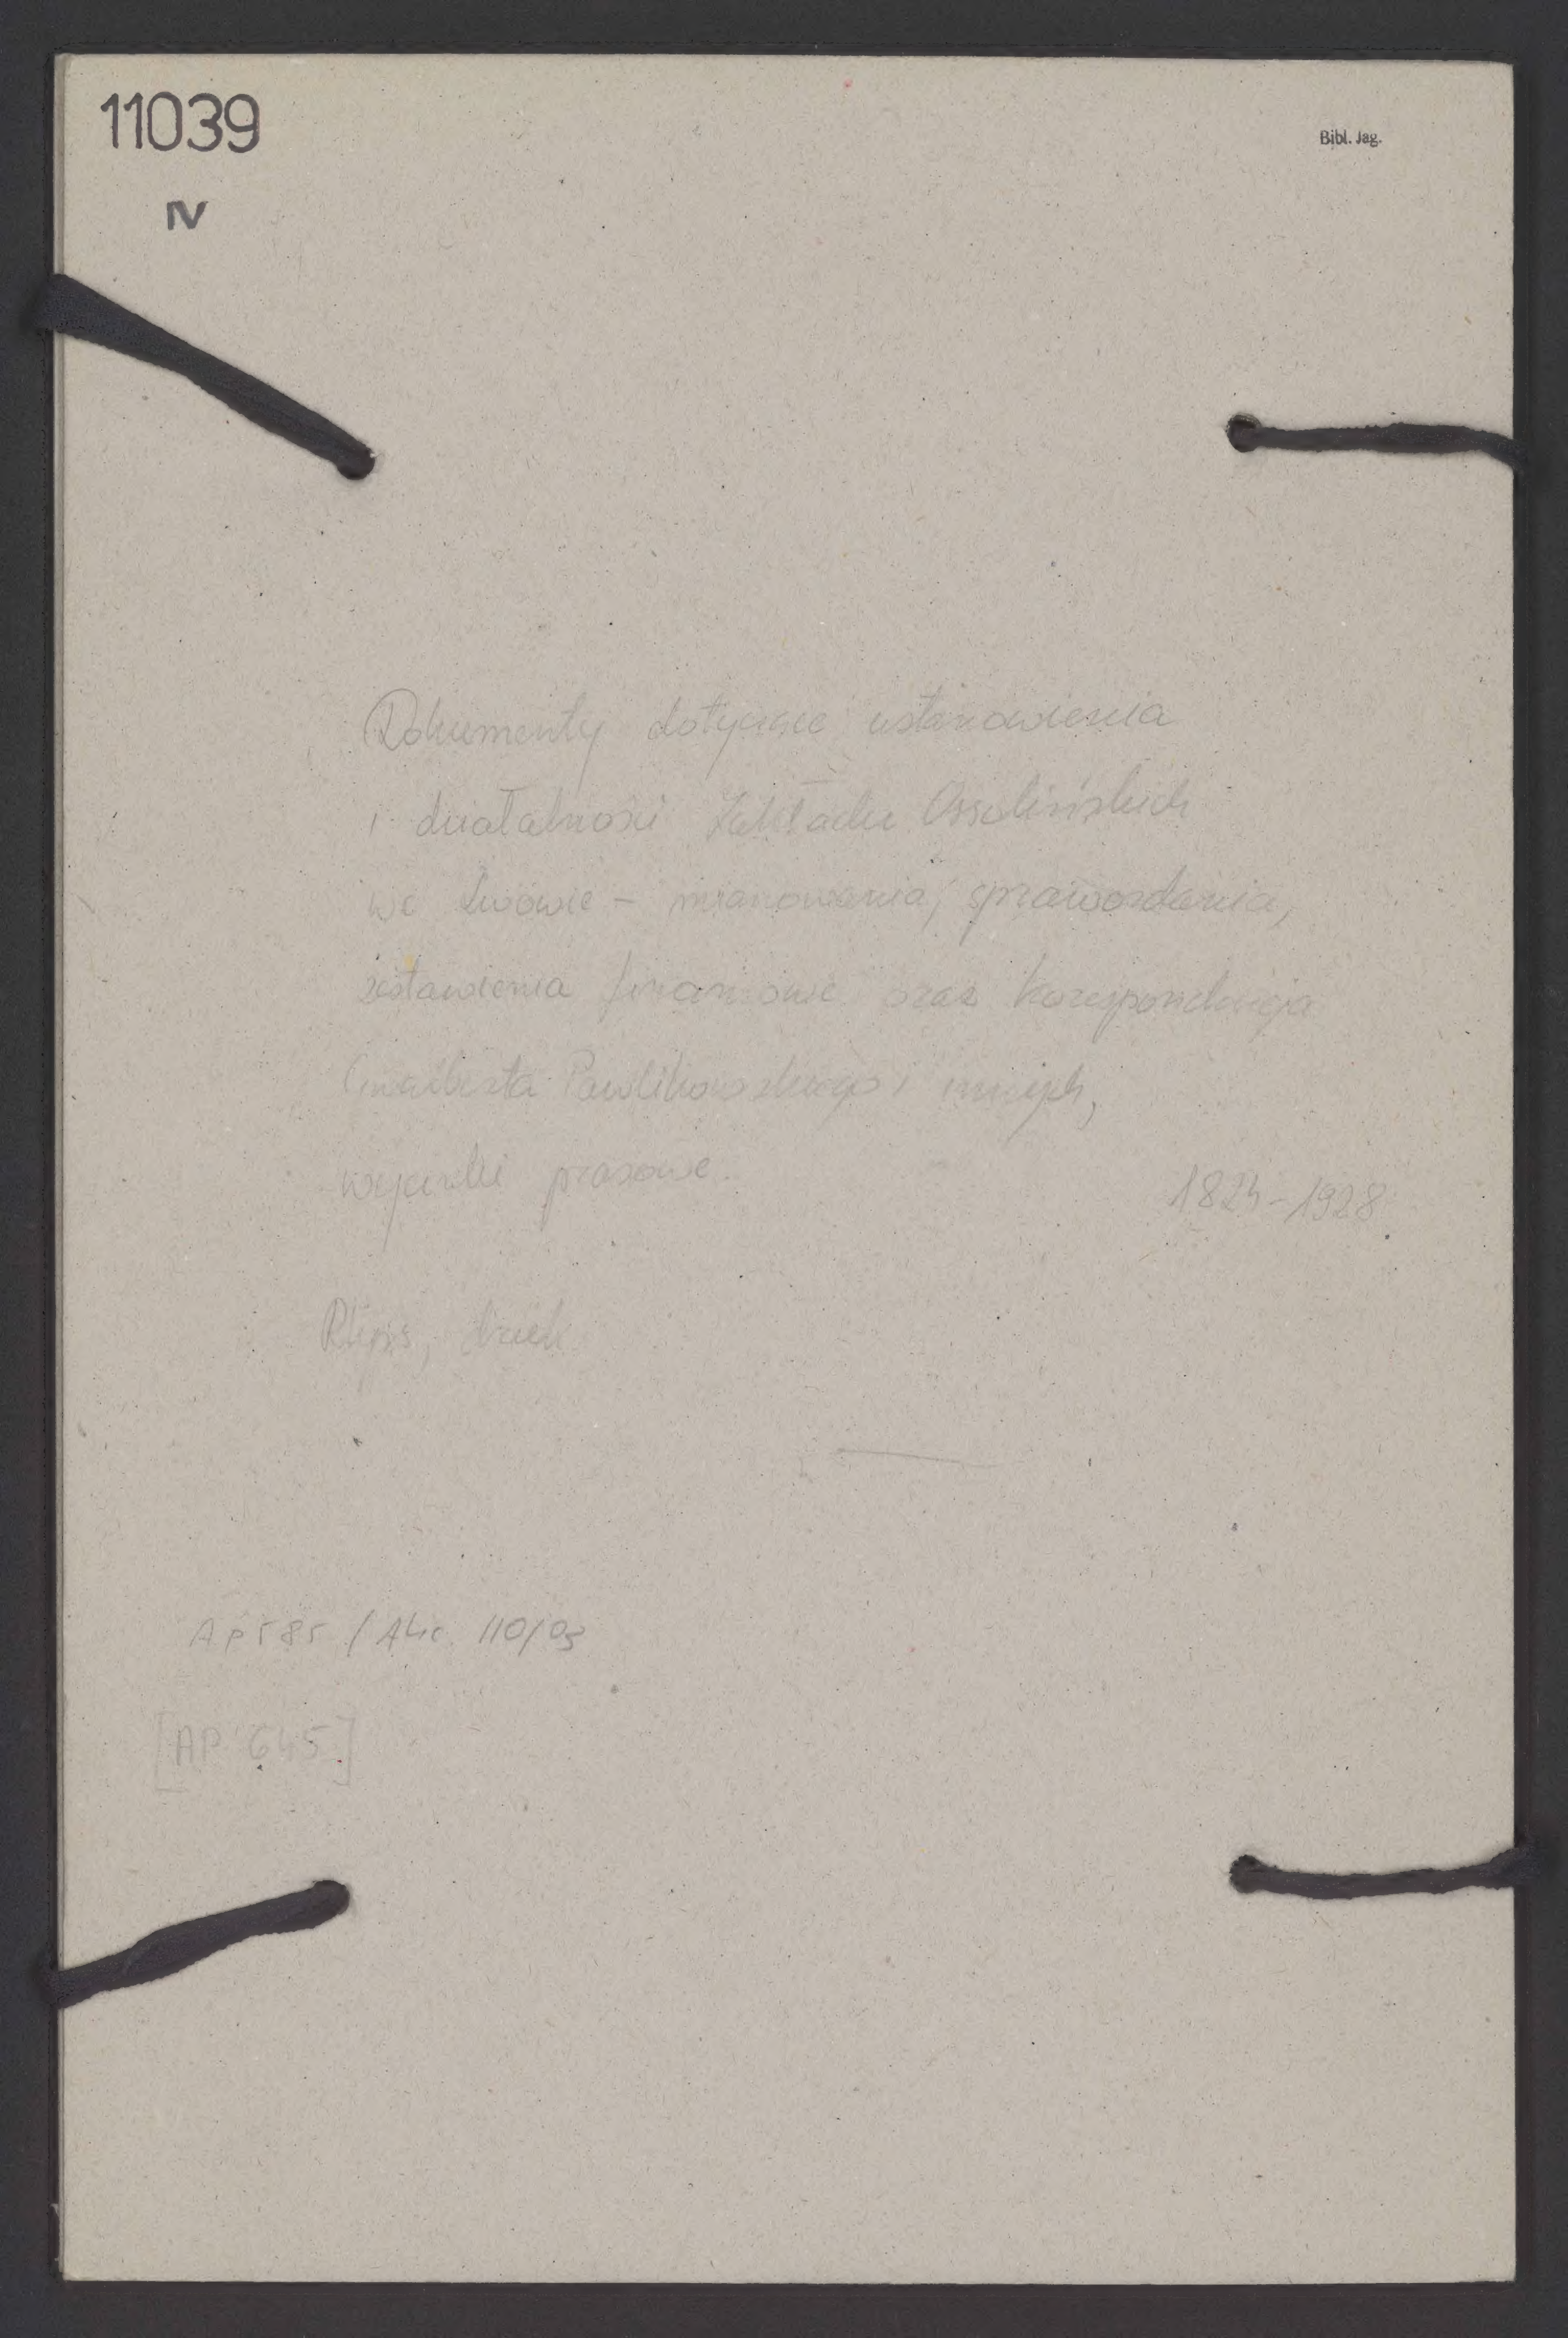 11039
Bibl. Jag.
IV
Dokumenty dotyczące ustanowienia
i działalności Zakładu Ossolińskich
we Lwowie – mianowania, sprawozdania,
zestawienia finansowe oraz korespondencja
Gwalberta Pawlikowskiego i innych,
wycinki prasowe.
1824-1928
Rkps, druk
AP 585 / Akc. 110/03
[AP 645]